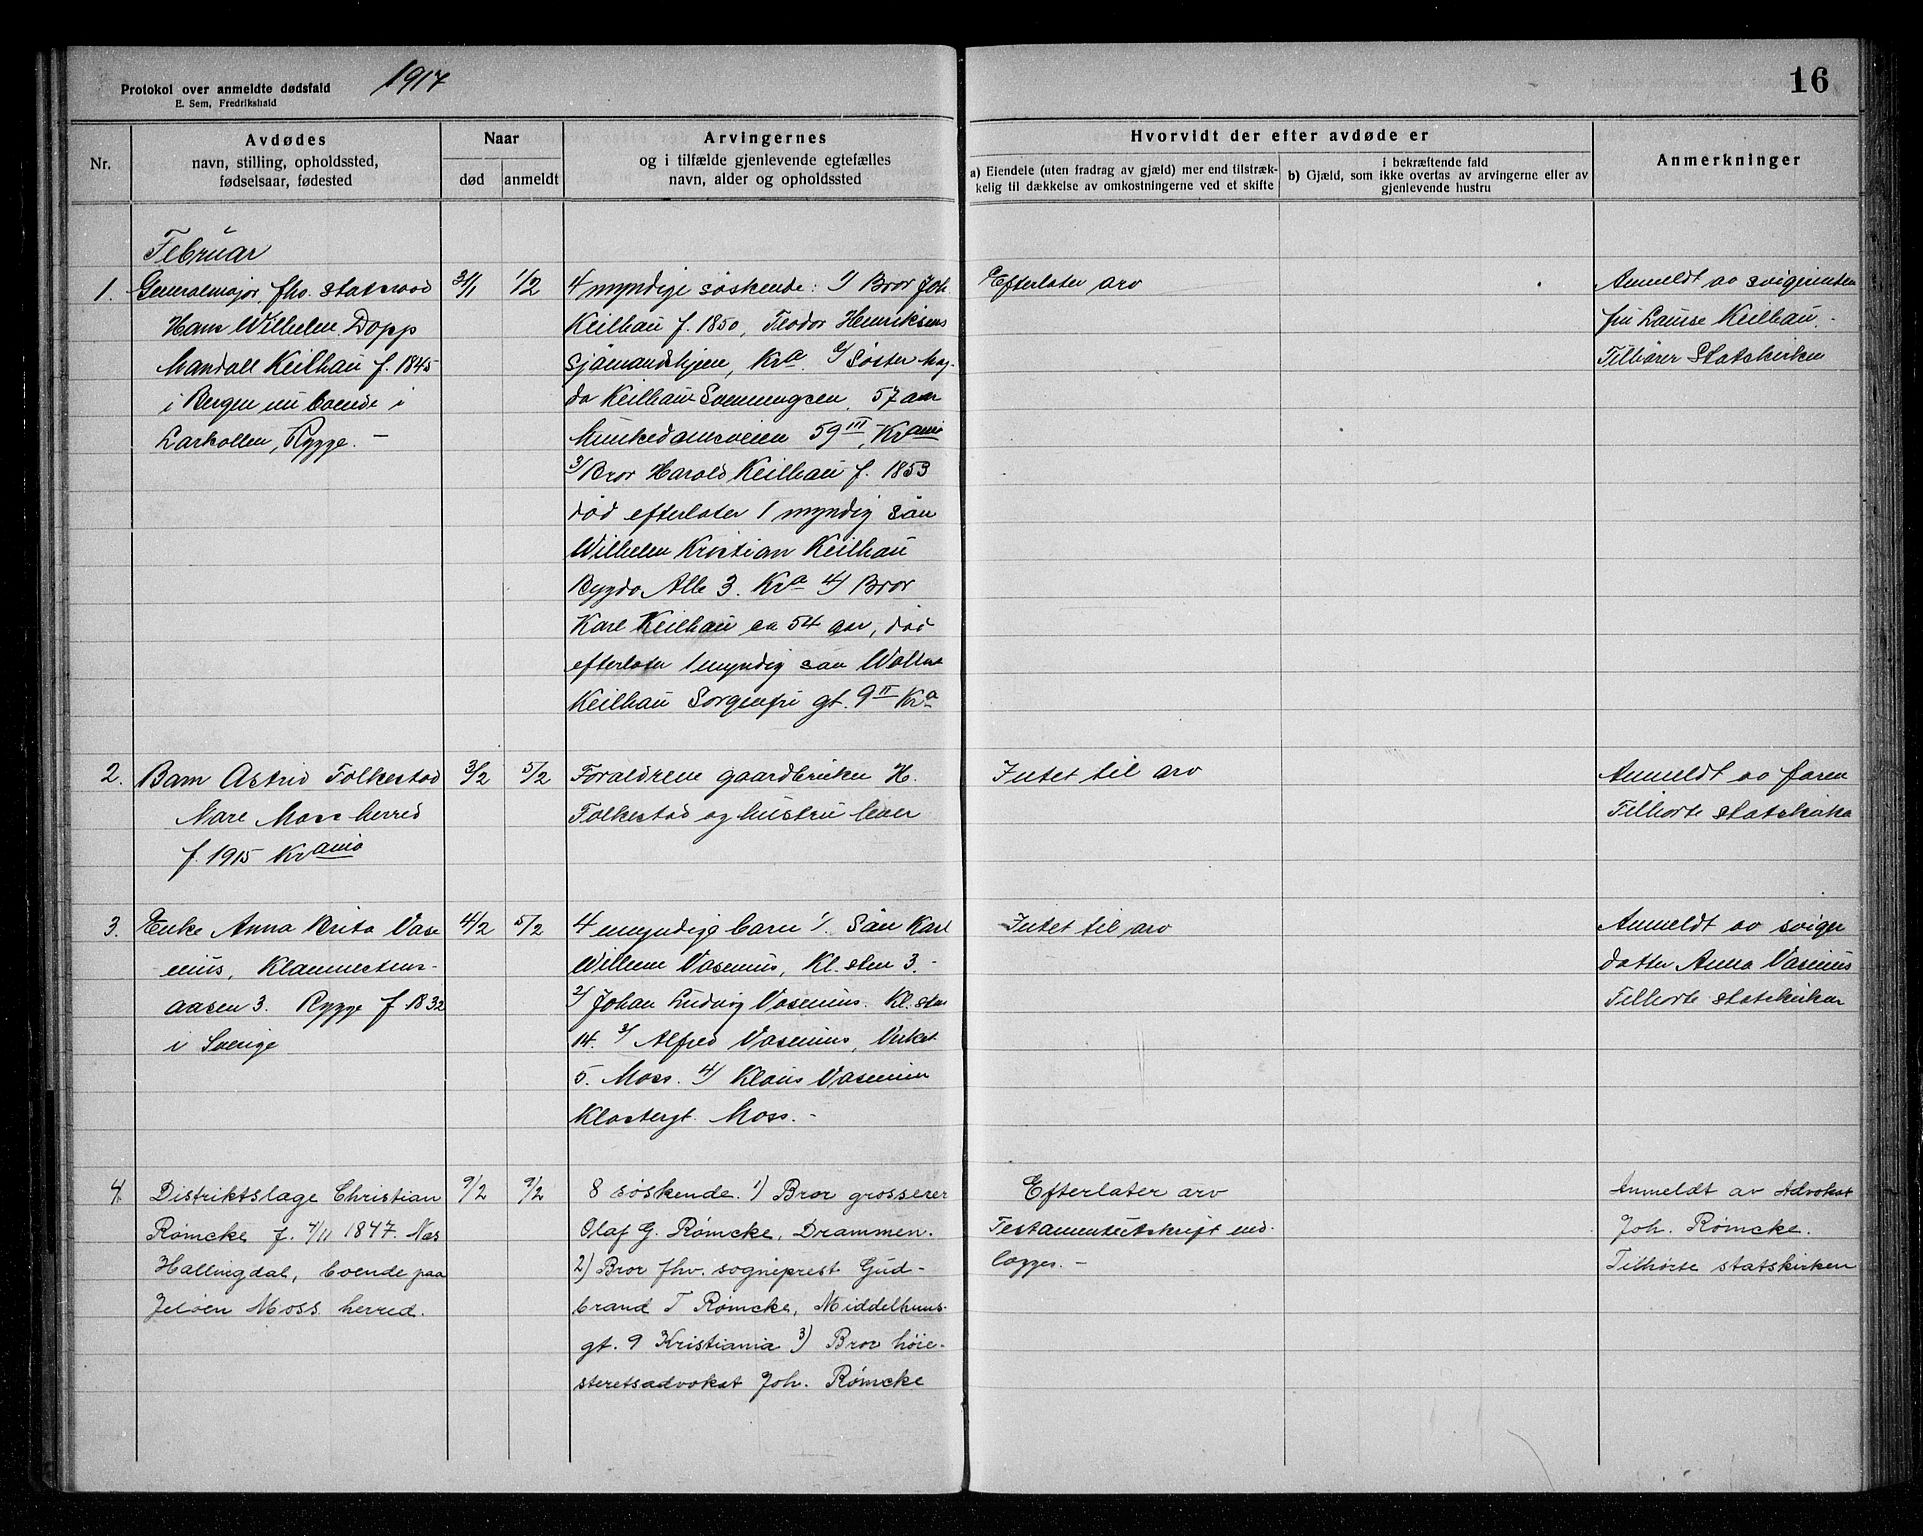 Protokol over anmeldte dødsfald
E. Sem, Fredrikshald
1917
16
Nr.
Avdødes
navn, stilling, opholdssted,
fødselsaar, fødested
Naar
død
anmeldt
Arvingernes
og i tilfælde gjenlevende egtefælles
navn, alder og opholdssted
Hvorvidt der efter avdøde er
a) Eiendele (uten fradrag av gjæld) mer end tilstræk-
kelig til dækkelse av omkostningerne ved et skifte
i bekræftende fald
b) Gjæld, som ikke overtas av arvingerne eller av
gjenlevende hustru
Anmerkninger
Februar
1.
Generalmajor, fhv. statsraad
Hans Wilhelm Dopp
Mandall Keilhau f. 1845
i Bergen nu boende i
Larkollen, Rygge. –
31/1
1/2
4 myndige søskende: 1) Bror Joh.
Keilhau f. 1850, Teodor Henriksens
Sjømandshjem, Kra. 2/ Søster Mag-
da Keilhau Svenningsen, 57 aar
Munkedamsveien 59 III, Krania
3/ Bror Harald Keilhau f. 1853
død efterlater 1 myndig søn
Wilhelm Kristian Keilhau
Bygdø Alle 3. Kra 4/ Bror
Karl Keilhau ca 54 aar, død
efterlater 1 myndig søn
Keilhau Sorgenfri gt. 9 II Kra
Efterlater arv
Anmeldt av svigerinden
fru Louise Keilhau. –
Tilhører Statskirken
2.
Barn Astrid Folkestad
Nare Moss herred
f. 1915 Krania
3/2
5/2
Forældrene gaardbruker H.
Folkestad og hustru lever
Intet til arv
Anmeldt av faren
Tilhørte statskirken
3.
Enke Anna Brita Vase
nius, Klommestens-
aasen 3. Rygge f 1832
i Sverige
4/2
5/2
4 myndige barn 1/. Søn Karl
Willem Vasenius, Kl. sten 3. –
2/ Johan Ludvig Vasenius. Kl. sten
14. 3/ Alfred Vasenius, Verket
5. Moss. 4/ Klaus Vasenius
Klostergt. Moss. –
Intet til arv
Anmeldt av sviger
datter Anna Vasenius
Tilhørte statskirken
4.
Distriktslæge Christian
Rømcke f. 4/11 1847. Nes
Hallingdal, boende paa
Jeløen Moss herred.
9/2
9/2
8 søskende. 1) Bror grosserer
Olaf G. Rømcke, Drammen.
2) Bror fhv. sogneprest Gud-
brand T Rømcke, Middelthuns-
gt. 9 Kristiania 3) Bror høie-
steretsadvokat Joh. Rømcke
Efterlater arv
Testamentsutskrift ned-
lægges. –
Anmeldt av Advokat
Joh. Rømcke.
Tilhørte statskirken